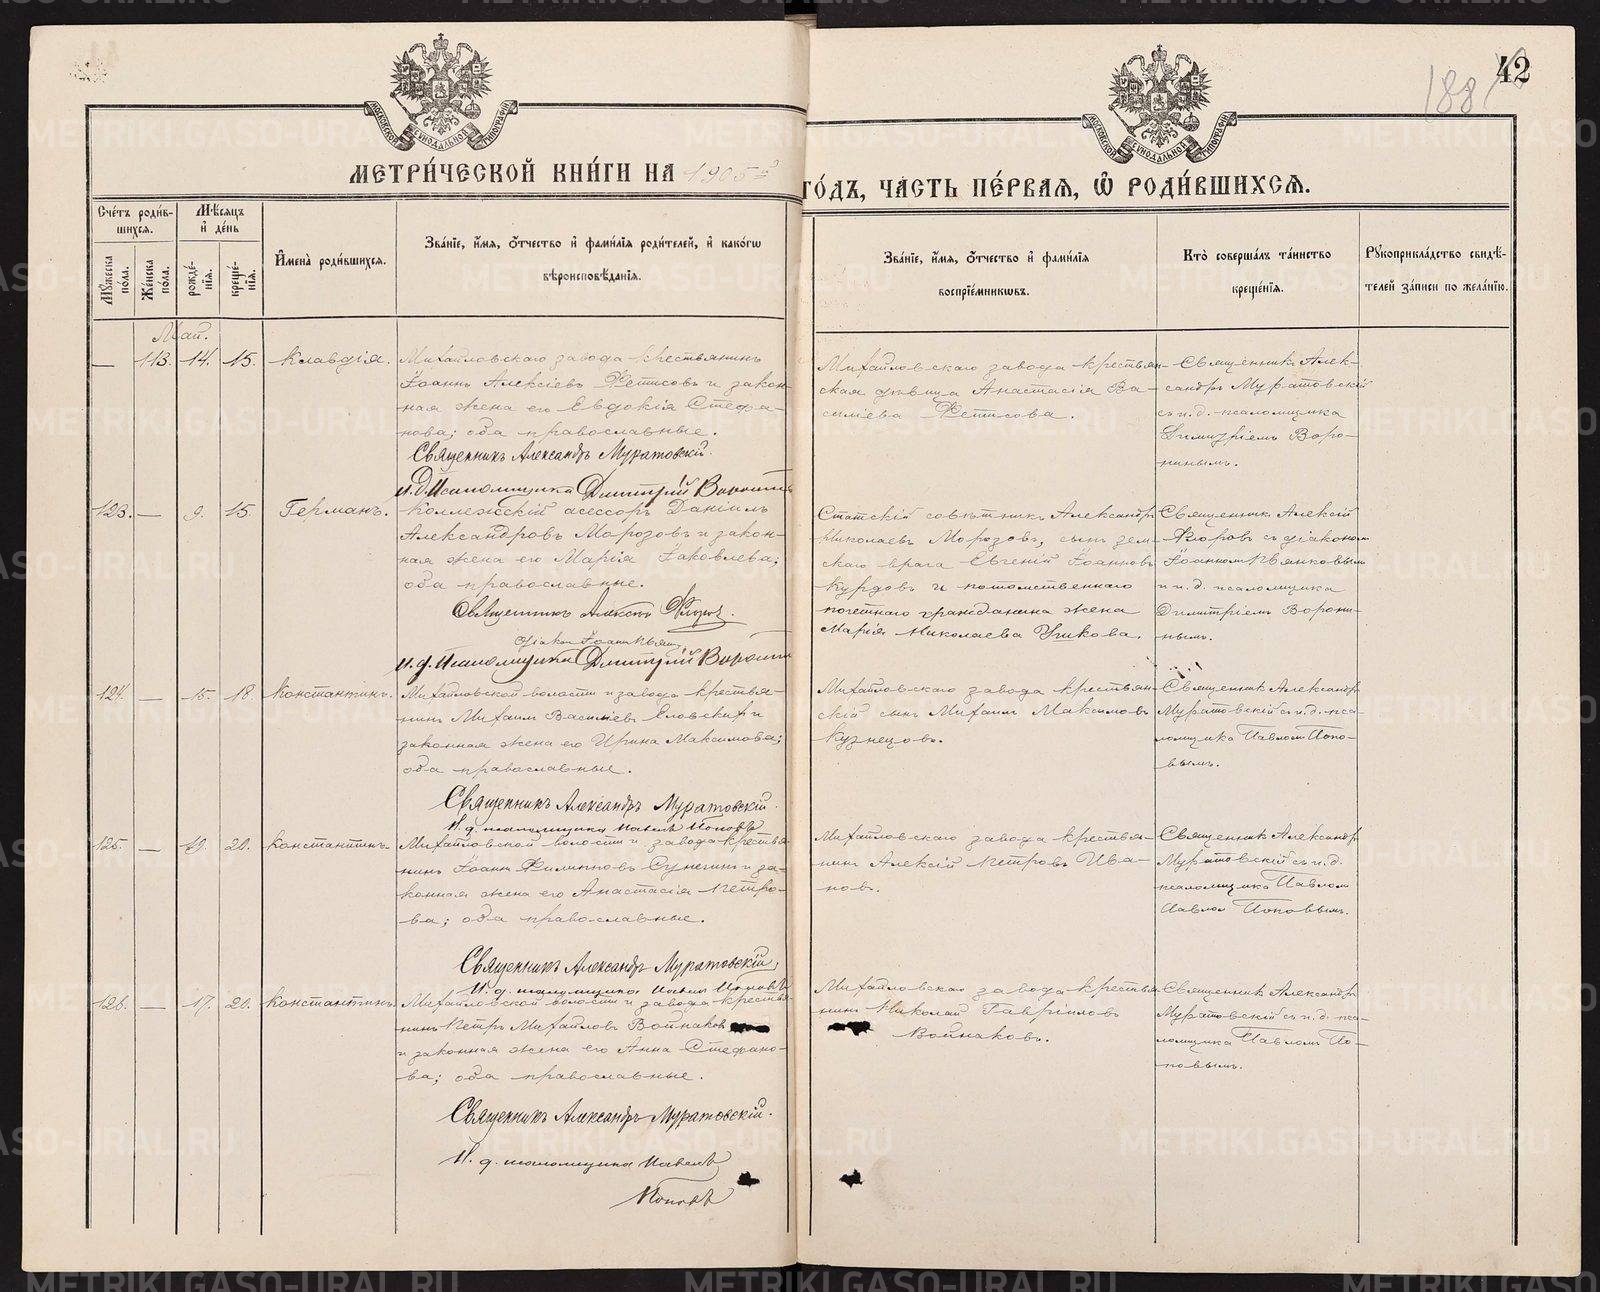 42
188
МОСКОВСКОЙ СУНОДАЛЬНОЙ ТИПОГРАФІИ
МОСКОВСКОЙ СУНОДАЛЬНОЙ ТИПОГРАФІИ
МЕТРИ́ЧЕСКОЙ КНИ́ГИ НА 1905й
ГО́ДЪ, ЧА́СТЬ ПЕ́РВАѦ, Ѡ҆ РОДИ́ВШИХСѦ.
Сче́тъ роди́в-
шихсѧ.
Мѣ́сѧцъ
и҆ де́нь
Мꙋ́жеска по́ла.
Же́нска по́ла.
рожде́-
нїѧ.
креще́-
нїѧ.
И҆мена̀ роди́вшихсѧ.
Зва́нїе, и҆́мѧ, ѻ҆́тчество и҆ фами́лїѧ роди́телей, и҆ како́гѡ
вѣроисповѣ́данїѧ.
Зва́нїе, и҆́мѧ, ѻ҆́тчество и҆ фами́лїѧ
воспрїе́мникѡвъ.
Кто̀ соверша́лъ та́инство
креще́нїѧ.
Рꙋкоприкла́дство свидѣ́-
телей за́писи по жела́нїю.
Май.
— 113. 14. 15. Клавдія.
Михайловскаго завода крестьянинъ
Іоаннъ Алексіевъ Фетисовъ и закон-
ная жена его Евдокія Стефа-
нова; оба православные.
Священникъ Александръ Муратовскій.
и.д. Псаломщика Дмитрій Воронинъ
Михайловскаго завода крестьян-
ская дѣвица Анастасія Ва-
силіева Фетисова.
Священникъ Алек-
сандръ Муратовскій
съ и. д. псаломщика
Димитріемъ Воро-
нинымъ.
123. — 9. 15. Германъ.
Коллежскій асессоръ Даніилъ
Александровъ Морозовъ и закон-
ная жена его Марія Іаковлева;
оба православные.
Священникъ Алексій Флоровъ.
діаконъ Іоаннъ
и.д. Псаломщика Дмитрій Воронинъ
Статскій совѣтникъ Александръ
Николаевъ Морозовъ, сынъ зем-
скаго врача Евгеній Іоанновъ
Курдовъ и потомственнаго
почетнаго гражданина жена
Марія Николаева Ушкова.
Священникъ Алексій
Флоровъ съ діакономъ
Іоанномъ
и и. д. псаломщика
Димитріемъ Ворони-
нымъ.
124. — 15. 18. Константинъ.
Михайловской волости и завода крестья-
нинъ Михаилъ Василіевъ Еловскихъ и
законная жена его Ирина Максимова;
оба православные.
Священникъ Александръ Муратовскій.
И. д. псаломщика Павелъ Поповъ
Михайловскаго завода крестьян-
скій сынъ Михаилъ Максимовъ
Кузнецовъ.
Священникъ Александръ
Муратовскій съ и. д. пса-
ломщика Павломъ Попо-
вымъ.
125. — 19. 20. Константинъ.
Михайловской волости и завода крестья-
нинъ Іоаннъ Филипповъ и за-
конная жена его Анастасія Петро-
ва; оба православные.
Священникъ Александръ Муратовскій,
И. д. псаломщика Павелъ Поповъ
Михайловскаго завода крестья-
нинъ Алексій Петровъ Ива-
новъ.
Священникъ Александръ
Муратовскій съ и. д.
псаломщика Павломъ
Павлом Поповымъ.
126. — 17. 20. Константинъ.
Михайловской волости и завода крестья-
нинъ Петръ Михайловъ Войнаковъ
и законная жена его Анна Стефано-
ва; оба православные.
Священникъ Александръ Муратовскій.
И. д. псаломщика Павелъ
Поповъ
Михайловскаго завода крестья-
нинъ Николай Гавріиловъ
Войнаковъ.
Священникъ Александръ
Муратовскій съ и. д. пса-
ломщика Павломъ По-
повымъ.
METRIKI.GASO-URAL.RU